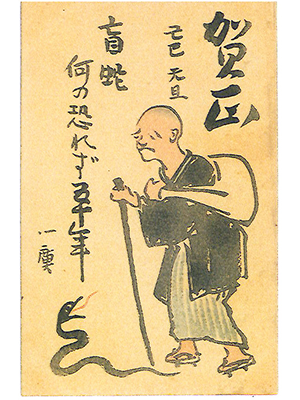 賀正
己巳 元旦
盲蛇
何の恐れず
一廣